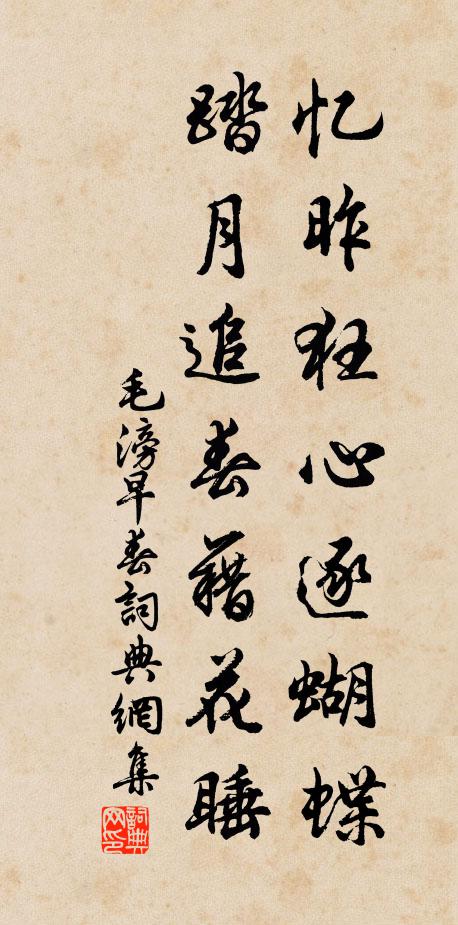 忆昨狂心逐蝴蝶
踏月追春藉花睡
毛滂早春詞典網集
詞典网印